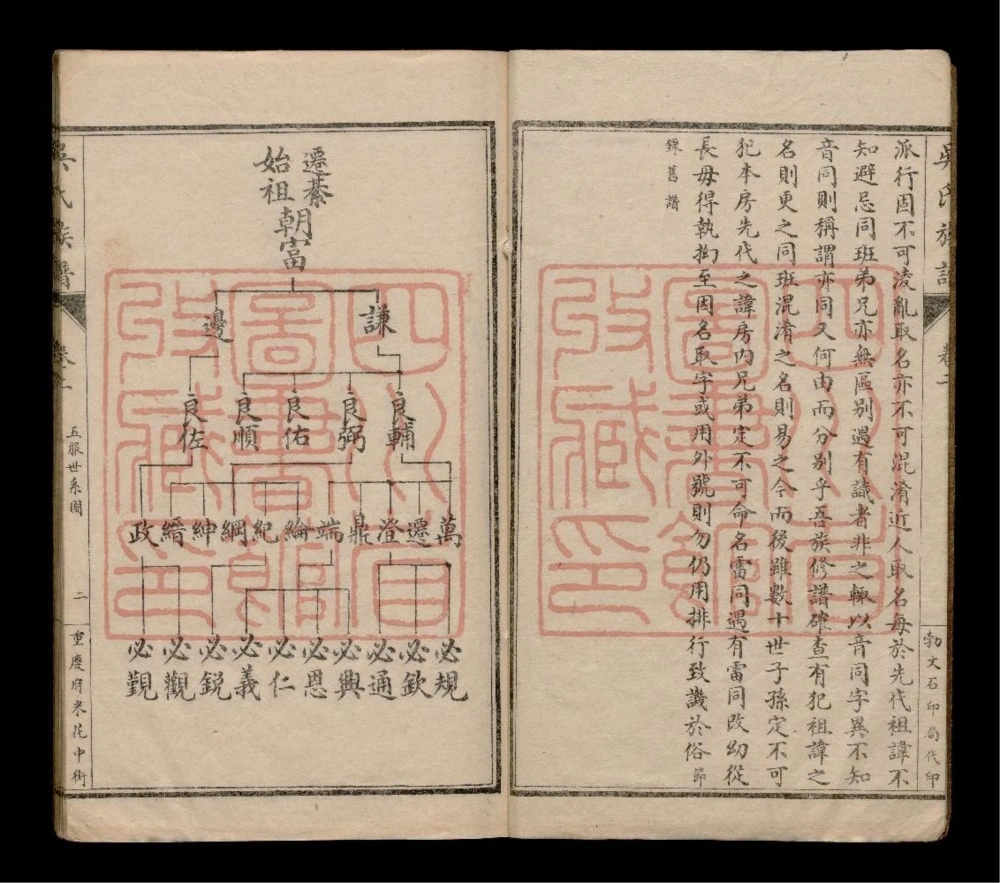 吳氏族譜
卷一
勃文石印局代印
派行固不可淩亂取名亦不可混淆近人取名每於先代祖諱不
知避忌同班弟兄亦無區别遇有識者非之輙以音同字異不知
音同則稱謂亦同又何由而分别乎吾族修譜確查有犯祖諱之
名則更之同班混淆之名則易之今而後雖數十世子孫定不可
犯本房先代之諱房内兄弟定不可命名雷同遇有雷同改幼從
長毋得執拘至因名取字或用外號則勿仍用排行致譏於俗節
錄舊譜
遷綦
始祖朝富
謙 邊
良輔 良弼 良佑 良順 良佐
萬 遷 澄 鼎 端 綸 紀 綱 紳 縉 政
必規 必欽 必通 必興 必恩 必仁 必義 必銳 必觀 必觀
吳氏族譜
卷一
五服世系圖
二
重慶府米花中街
四川省
圖書館
收藏印
四川省
圖書館
收藏印